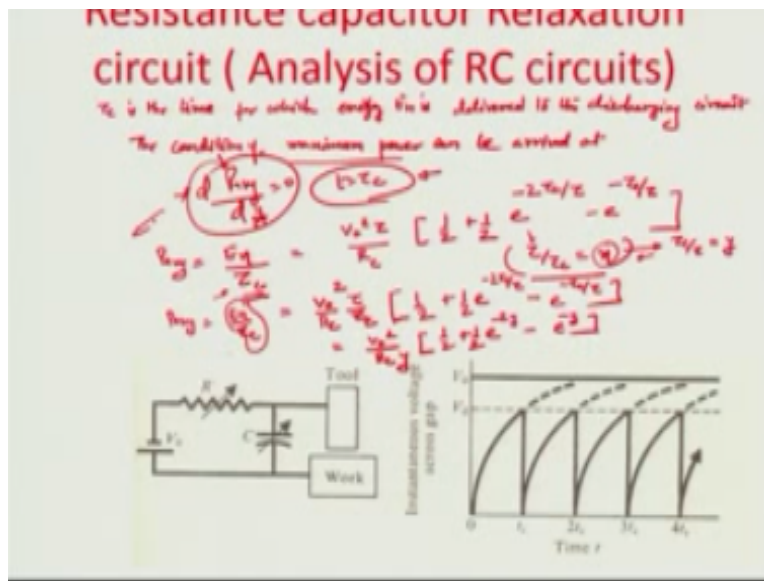 Resistance capacitor Relaxation
circuit ( Analysis of RC circuits)
τc is the time for which energy En is delivered to the discharging circuit
The condition for maximum power can be arrived at
d Pavg / d = 0 t = τc
Pavg = En / τc = V0² τ / Rc [ 1/2 + 1/2 e^-2τc/τ - e^-τc/τ ]
τc/τ = y
Pavg = En / τc = V0² / Rc τ / τc [ 1/2 + 1/2 e^-2τc/τ - e^-τc/τ ]
= V0² / Rc y [ 1/2 + 1/2 e^-2y - e^-y ]
R
C
V0
Tool
Work
Instantaneous voltage
across gap
V0
Vd
0 tc 2tc 3tc 4tc
Time t